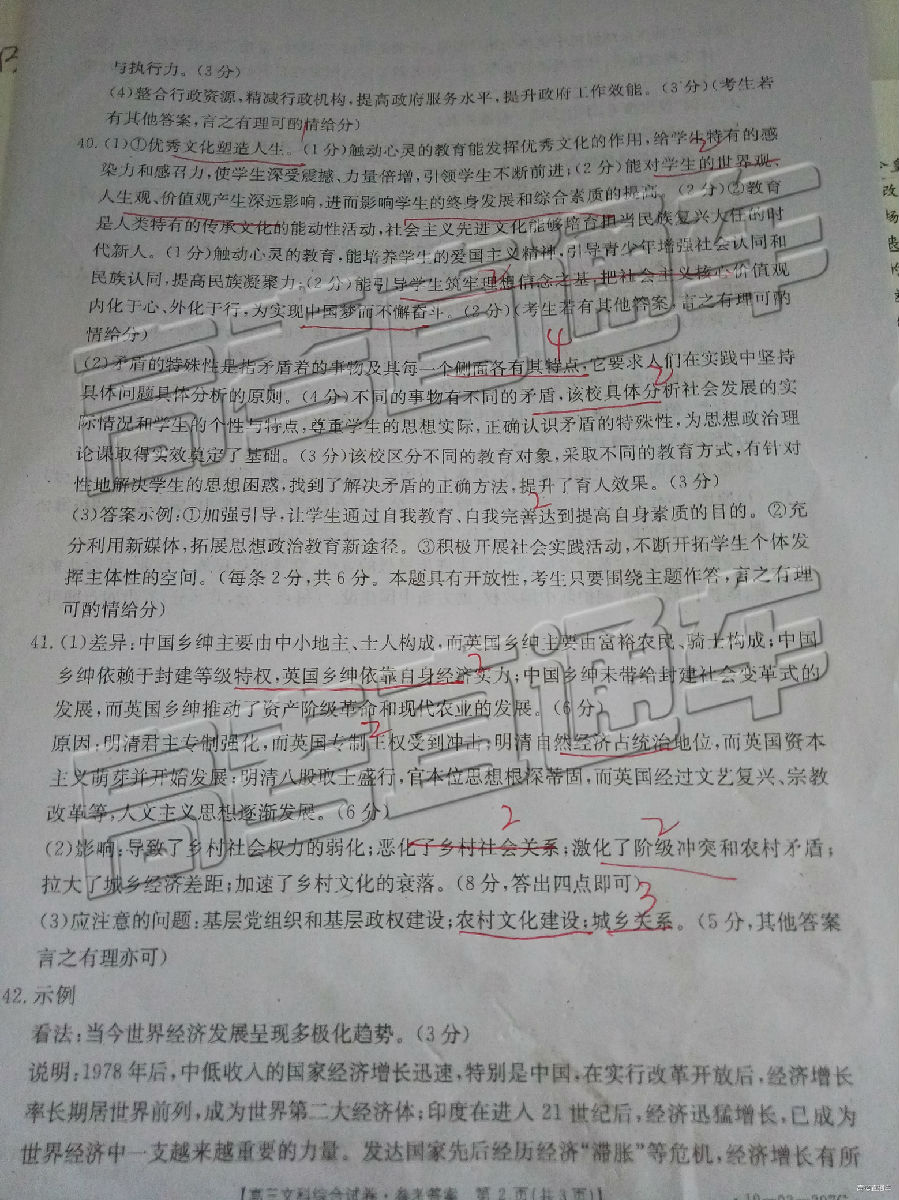 与执行力。(3分)
(4)整合行政资源,精减行政机构,提高政府服务水平,提升政府工作效能。(3分)(考生若
有其他答案,言之有理可酌情给分)
40.(1)①优秀文化塑造人生。(1分)触动心灵的教育能发挥优秀文化的作用,给学生特有的感
染力和感召力,使学生深受震撼、力量倍增,引领学生不断前进;(2分)能对学生的世界观、
人生观、价值观产生深远影响,进而影响学生的终身发展和综合素质的提高。(2分)②教育
是人类特有的传承文化的能动性活动,社会主义先进文化能够培育担当民族复兴大任的时
代新人。(1分)触动心灵的教育,能培养学生的爱国主义精神,引导青少年增强社会认同和
民族认同,提高民族凝聚力;(2分)能引导学生筑牢理想信念之基,把社会主义核心价值观
内化于心、外化于行,为实现中国梦而不懈奋斗。(2分)(考生若有其他答案,言之有理可酌
情给分)
(2)矛盾的特殊性是指矛盾着的事物及其每一个侧面各有其特点,它要求人们在实践中坚持
具体问题具体分析的原则。(4分)不同的事物有不同的矛盾,该校具体分析社会发展的实
际情况和学生的个性与特点,尊重学生的思想实际,正确认识矛盾的特殊性,为思想政治理
论课取得实效奠定了基础。(3分)该校区分不同的教育对象,采取不同的教育方式,有针对
性地解决学生的思想困惑,找到了解决矛盾的正确方法,提升了育人效果。(3分)
(3)答案示例:①加强引导,让学生通过自我教育、自我完善达到提高自身素质的目的。②充
分利用新媒体,拓展思想政治教育新途径。③积极开展社会实践活动,不断开拓学生个体发
挥主体性的空间。(每条2分,共6分。本题具有开放性,考生只要围绕主题作答,言之有理
可酌情给分)
41.(1)差异:中国乡绅主要由中小地主、士人构成,而英国乡绅主要由富裕农民、骑士构成;中国
乡绅依赖于封建等级特权,英国乡绅依靠自身经济实力;中国乡绅未带给封建社会变革式的
发展,而英国乡绅推动了资产阶级革命和现代农业的发展。(6分)
原因:明清君主专制强化,而英国专制王权受到冲击;明清自然经济占统治地位,而英国资本
主义萌芽并开始发展;明清八股取士盛行,官本位思想根深蒂固,而英国经过文艺复兴、宗教
改革等,人文主义思想逐渐发展。(6分)
(2)影响:导致了乡村社会权力的弱化;恶化了乡村社会关系;激化了阶级冲突和农村矛盾;
拉大了城乡经济差距;加速了乡村文化的衰落。(8分,答出四点即可)
(3)应注意的问题:基层党组织和基层政权建设;农村文化建设;城乡关系。(5分,其他答案
言之有理亦可)
42.示例
看法:当今世界经济发展呈现多极化趋势。(3分)
说明:1978年后,中低收入的国家经济增长迅速,特别是中国,在实行改革开放后,经济增长
率长期居世界前列,成为世界第二大经济体;印度在进入21世纪后,经济迅猛增长,已成为
世界经济中一支越来越重要的力量。发达国家先后经历经济“滞胀”等危机,经济增长有所
【高三文科综合试卷·参考答案 第2页(共3页)】
高考直通车
高考直通车